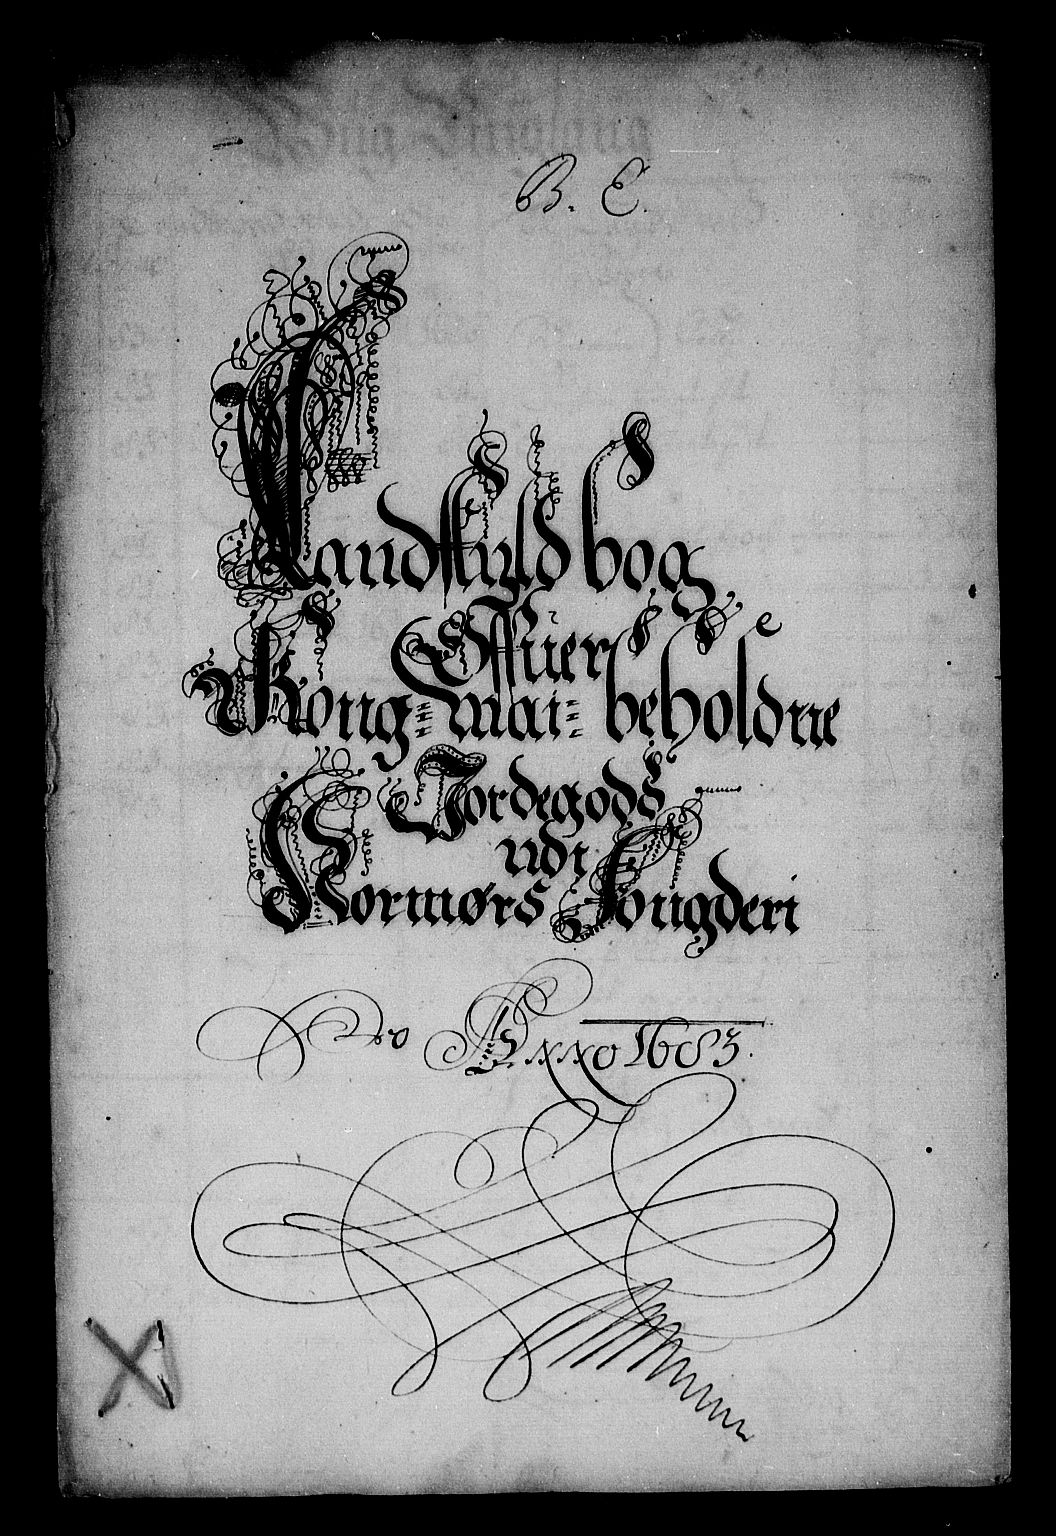 B. E.
Landskyld bog
Offuer
Kong= mai= beholdne
Jordegods
udi
Normørs fougderi
Pro Anno 1683.